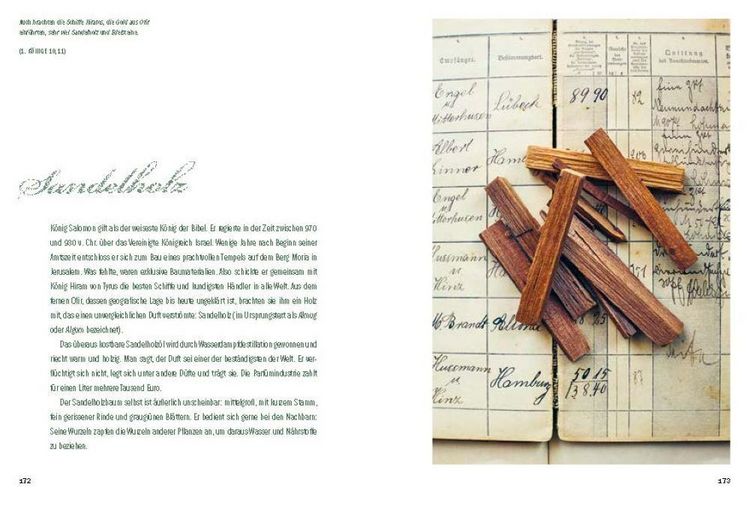 Auch brachten die Schiffe Hirams, die Gold aus Ofir
einführten, sehr viel Sandelholz und Edelsteine.
(1. KÖNIGE 10,11)
Sandelholz
König Salomon gilt als der weiseste König der Bibel. Er regierte in der Zeit zwischen 970
und 930 v. Chr. über das Vereinigte Königreich Israel. Wenige Jahre nach Beginn seiner
Amtszeit entschloss er sich zum Bau eines prachtvollen Tempels auf dem Berg Moria in
Jerusalem. Was fehlte, waren exklusive Baumaterialien. Also schickte er gemeinsam mit
König Hiram von Tyrus die besten Schiffe und kundigsten Händler in alle Welt. Aus dem
fernen Ofir, dessen geografische Lage bis heute ungeklärt ist, brachten sie ihm ein Holz
mit, das einen unvergleichlichen Duft verströmte: Sandelholz (im Ursprungstext als Almug
oder Algom bezeichnet).
Das überaus kostbare Sandelholzöl wird durch Wasserdampfdestillation gewonnen und
riecht warm und holzig. Man sagt, der Duft sei einer der beständigsten der Welt. Er ver-
flüchtigt sich nicht, legt sich unter andere Düfte und trägt sie. Die Parfümindustrie zahlt
für einen Liter mehrere Tausend Euro.
Der Sandelholzbaum selbst ist äußerlich unscheinbar: mittelgroß, mit kurzem Stamm,
fein gerissener Rinde und graugrünen Blättern. Er bedient sich gerne bei den Nachbarn:
Seine Wurzeln zapfen die Wurzeln anderer Pflanzen an, um daraus Wasser und Nährstoffe
zu beziehen.
172
Empfänger. Bestimmungsort. Quittung
Engel
u Lübeck 89 90 82
Mitterhusen
Albert
Linner Hamb
Engel
u
Mitterhusen
Hussmann
u
Hinz
M Brandt Altona 25
Hussmann 50 15
u Hamburg 38,40
Hinz
173